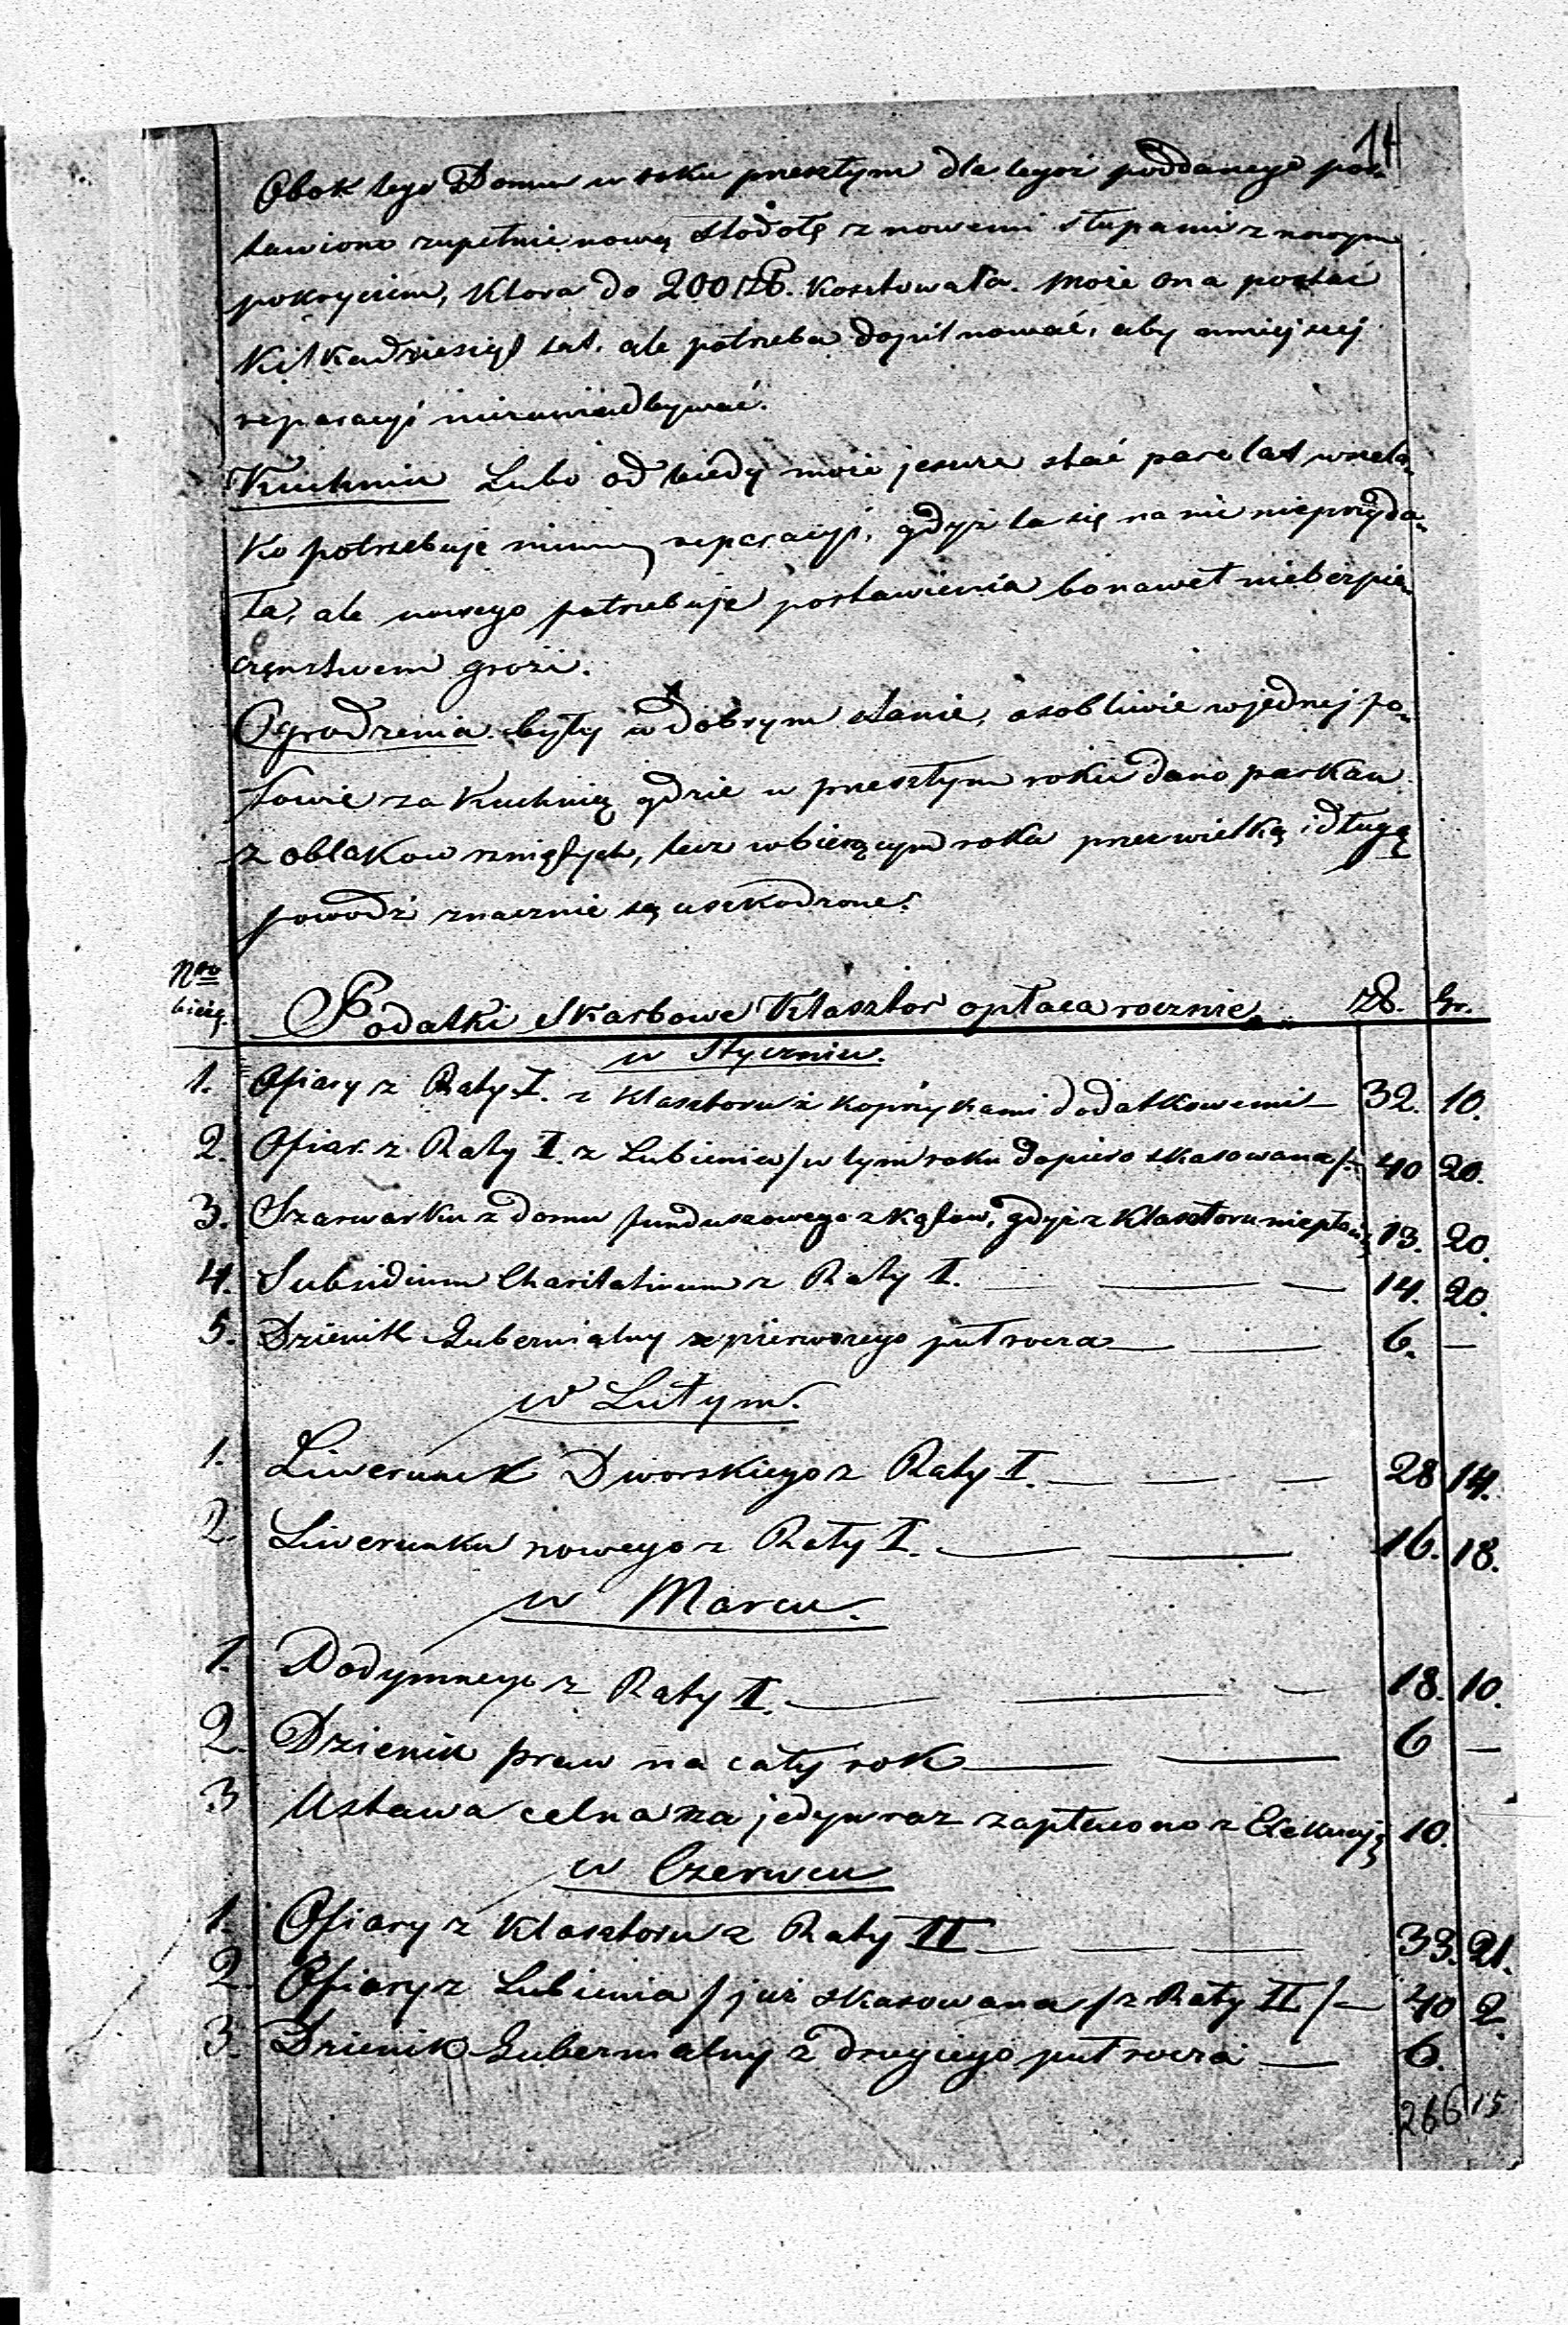 14
Obok tego Domu w roku przeszłym dla tegoż poddanego pos-
tawiono zupełnie nową stodołę z nowemi słupami z nowym
pokryciem, ktora do 200 Złł. kosztowała. Może ona postać
kilkadziesiąt lat, ale potrzeba dopilnować, aby mniejszej
reparacyi niezaniedbywać.
Kuchnia Lubo od biedy może jeszcze stać pare lat wszela-
ko potrzebuje reparacyi, gdyż ta się na nic nieprzyda-
ła, ale nowego potrzebuje postawienia bo nawet niebezpie-
czeństwem grozi.
Ogrodzenia były w dobrym stanie, osobliwie w jednej po-
łowie za Kuchnią gdzie w przeszłym roku dano parkan
z oblakow rzniętych, lecz w bieżącym roku przez wielką i długą
powodź znacznie są uszkodzone.
Nro
bieżą.
Podatki Skarbowe Klasztor opłaca rocznie Zł. Gr.
w Styczniu.
1. Ofiary z Raty I. z Klasztoru z kopiykami dodatkowemi — 32. 10.
2. Ofiar. z Raty I. z Lubienia /w tym roku dopiero skasowana/ — 40 20.
3. Szarwarku z domu funduszowego z Kątow, gdyż z Klasztoru niepłaci 13. 20.
4. Subsidium Charitativum z Raty I. — — — 14. 20.
5. Dzienik Gubernialny z pierwszego pułrocza — — 6. —
w Lutym.
1. Liwerunek Dworskiego z Raty I. — — — 28 14.
2. Liwerunku nowego z Raty I. — — 16. 18.
w Marcu.
1. Podymnego z Raty I. — — — 18. 10.
2. Dzienik praw na cały rok — — 6 —
3 Ustawa celna za jedyn raz zapłacono z Exekucyją 10.
w Czerwcu
1. Ofiary z Klasztoru z Raty II — — — 33. 21.
2. Ofiary z Lubienia / już skasowana / z Raty II / — 40 2.
3. Dzienik Gubernialny z drugiego pułrocza — 6.
266 15